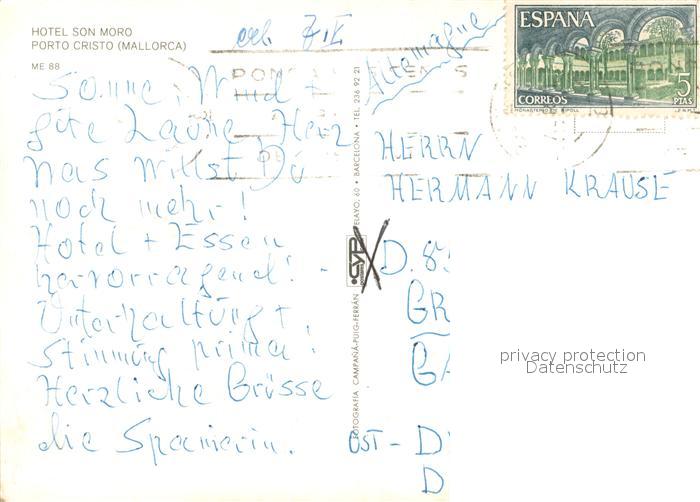 HOTEL SON MORO
PORTO CRISTO (MALLORCA)
ME 88
Sonne, Wind +
gute Laune, Herz
was willst Du
noch mehr!
Hotel + Essen
hervorragend! -
Unterhaltung +
Stimmung prima!
Herzliche Grüsse
die Spanierin.
FOTOGRAFIA CAMPAÑÁ-PUIG-FERRÁN
PELAYO, 60 • BARCELONA • TEL. 236 92 21
CYP
Allemagne
ESPAÑA
5
PTAS
CORREOS
MONASTERIO DE RIPOLL
HERRN
HERMANN KRAUSE
D. 8
GR
GA
OST - D
D
privacy protection
Datenschutz